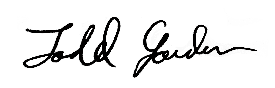 Todd Gorden